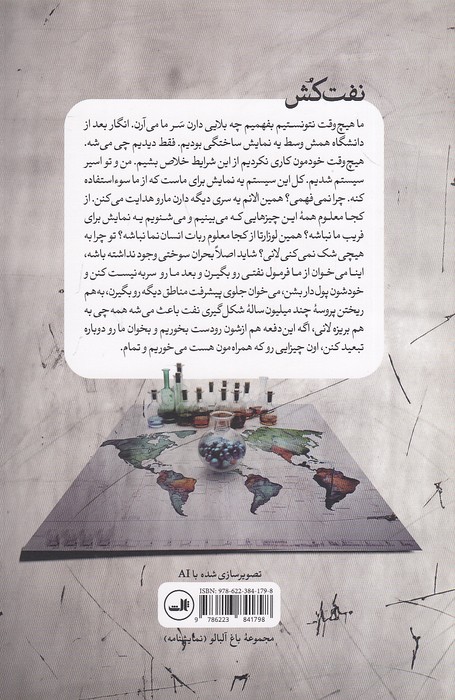 نفت‌کُش
ما هیچ‌وقت نتونستیم بفهمیم چه بلایی دارن سَر ما می‌آرن. انگار بعد از
دانشگاه همش وسط یه نمایش ساختگی بودیم. فقط دیدیم چی می‌شه.
هیچ‌وقت خودمون کاری نکردیم از این شرایط خلاص بشیم. من و تو اسیر
سیستم شدیم. کل این سیستم یه نمایش برای ماست که از ما سوءاستفاده
کنه. چرا نمی‌فهمی؟ همین الانم یه سری دیگه دارن ما رو هدایت می‌کنن. از
کجا معلوم همهٔ این چیزهایی که می‌بینیم و می‌شنویم یه نمایش برای
فریب ما نباشه؟ همین لوزارتا از کجا معلوم ربات انسان نما نباشه؟ تو چرا به
هیچی شک نمی‌کنی لاتی؟ شاید اصلاً بحران سوختی وجود نداشته باشه،
اینا می‌خوان از ما فرمول نفتی رو بگیرن و بعد ما رو سربه‌نیست کنن و
خودشون پول‌دار بشن، می‌خوان جلوی پیشرفت مناطق دیگه رو بگیرن، به‌هم
ریختن پروسهٔ چند میلیون سالهٔ شکل‌گیری نفت باعث می‌شه همه‌چی به
هم بریزه لاتی، اگه این دفعه هم ازشون رودست بخوریم و بخوان ما رو دوباره
تبعید کنن، اون چیزایی رو که همراه‌مون هست می‌خوریم و تمام.
تصویرسازی شده با AI
ISBN: 978-622-384-179-8
9 786223 841798
ثالث
مجموعهٔ باغ آلبالو (نمایشنامه)